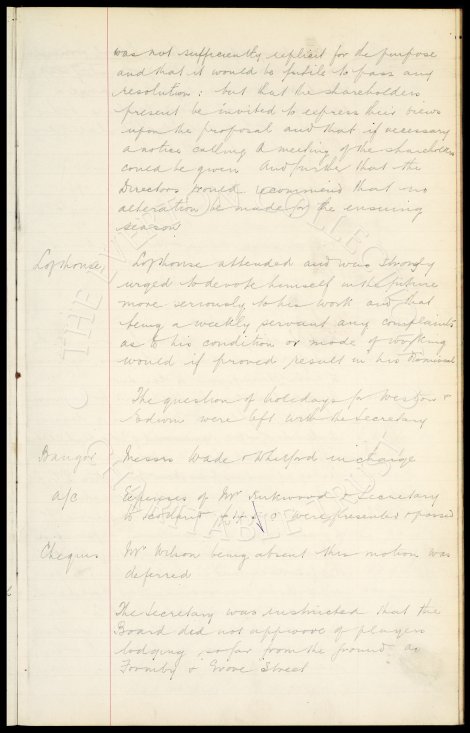 was not sufficiently explicit for the purpose
and that it would be futile to pass any
resolution: but that the shareholders
present be invited to express their views
upon the proposal and that if necessary
a notice calling a meeting of the shareholders
could be given And further that the
Directors would recommend that no
alteration be made for the ensuing
season
Lofthouse Lofthouse attended and was strongly
urged to devote himself in the future
more seriously to his work and that
being a weekly servant any complaints
as to his condition or mode of working
would if proved result in his dismissal
The question of holidays for &
were left with the Secretary
Bangor Messrs Wade & Whitford in charge
a/c Expenses of Mr Kirkwood & Secretary
to Scotland were presented & passed
Cheques Mr Wilson being absent this motion was
deferred
The Secretary was instructed that the
Board did not approve of players
lodging so far from the ground as
Formby & Grove Street
THE EVERTON COLLECTION
CHARITABLE TRUST